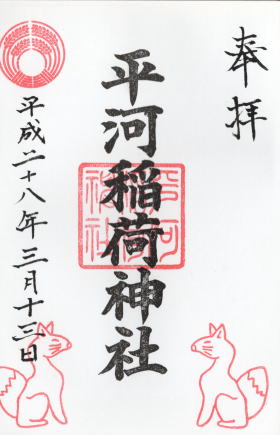 奉拝
平河稲荷神社
平河稲荷神社
平成二十八年三月十三日